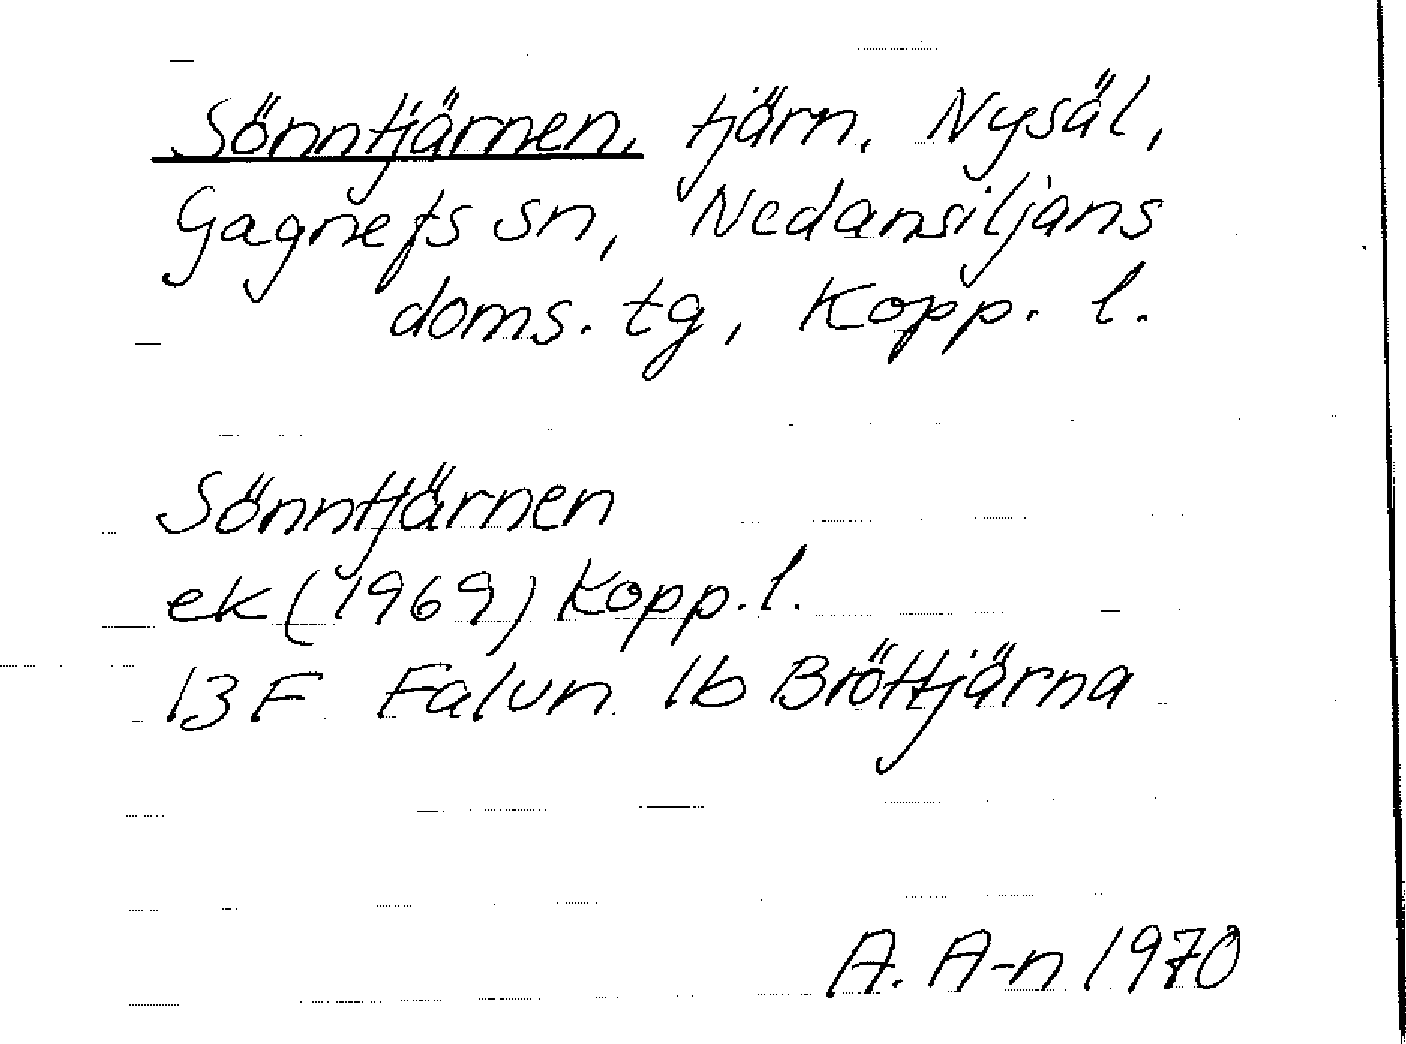 Sönntjärnen, tjärn, Nysäl,
Gagnefs sn, Nedansiljans
doms. tg, Kopp. l.
Sönntjärnen
ek (1969) Kopp. l.
13 F Falun 1b Bröttjärna
A. A-n 1970